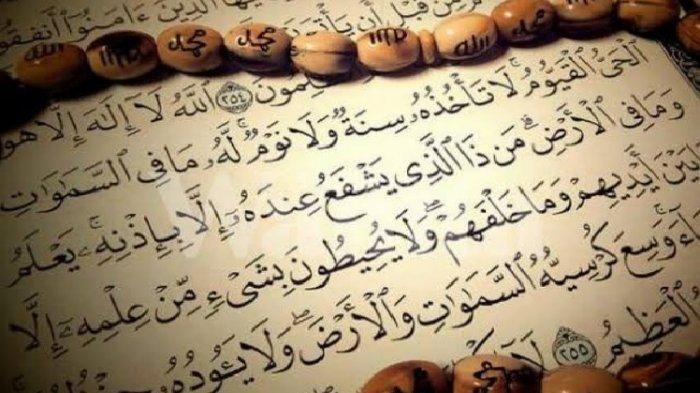 مِّن قَبْلِ أَن يَأْتِىَ
ٱلَّذِينَ ءَامَنُوٓا۟ أَنفِقُوا۟
الله
محمد
محمد
الله
محمد
ٱللَّهُ لَآ إِلَٰهَ إِلَّا هُوَ ٢٥٤
ٱلْحَىُّ ٱلْقَيُّومُ ۚ لَا تَأْخُذُهُۥ سِنَةٌ وَلَا نَوْمٌ ۚ لَّهُۥ مَا فِى ٱلسَّمَٰوَٰتِ
وَمَا فِى ٱلْأَرْضِ ۗ مَن ذَا ٱلَّذِى يَشْفَعُ عِندَهُۥٓ إِلَّا بِإِذْنِهِۦ ۚ يَعْلَمُ
بَيْنَ أَيْدِيهِمْ وَمَا خَلْفَهُمْ ۖ وَلَا يُحِيطُونَ بِشَىْءٍ مِّنْ عِلْمِهِۦٓ إِلَّا
وَسِعَ كُرْسِيُّهُ ٱلسَّمَٰوَٰتِ وَٱلْأَرْضَ ۖ وَلَا يَـُٔودُهُۥ
ٱلْعَظِيمُ ٢٥٥ لَآ